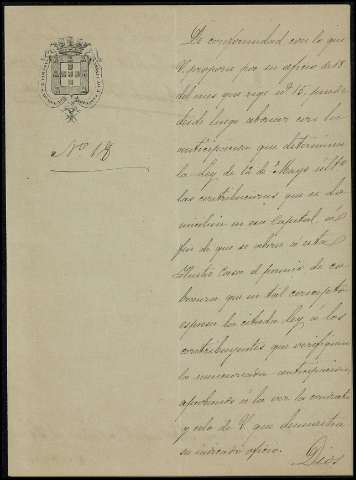 De conformidad con lo que
V. propone por su oficio de 18
del mes que rige nº 15, puede
desde luego abonar con la
anticipacion que determina
la Ley de 12 de Mayo ultº
las contribuciones que se do
en esa Capital, á
fin de que se abone á esta
Ilustre Casa el premio de co
branza que en tal concepto
la citada Ley, á los
contribuyentes que verifiquen
la mencionada anticipacion,
aprobando á la vez la
y celo de V. que demuestra
su indicado oficio.
Dios
Nº 18